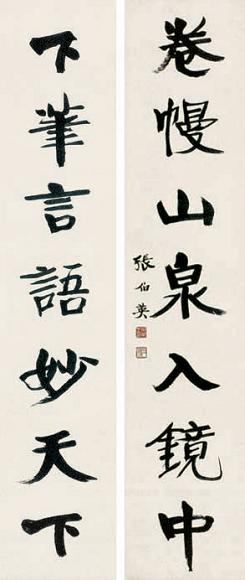 卷幔山泉入鏡中
下筆言語妙天下
張伯英